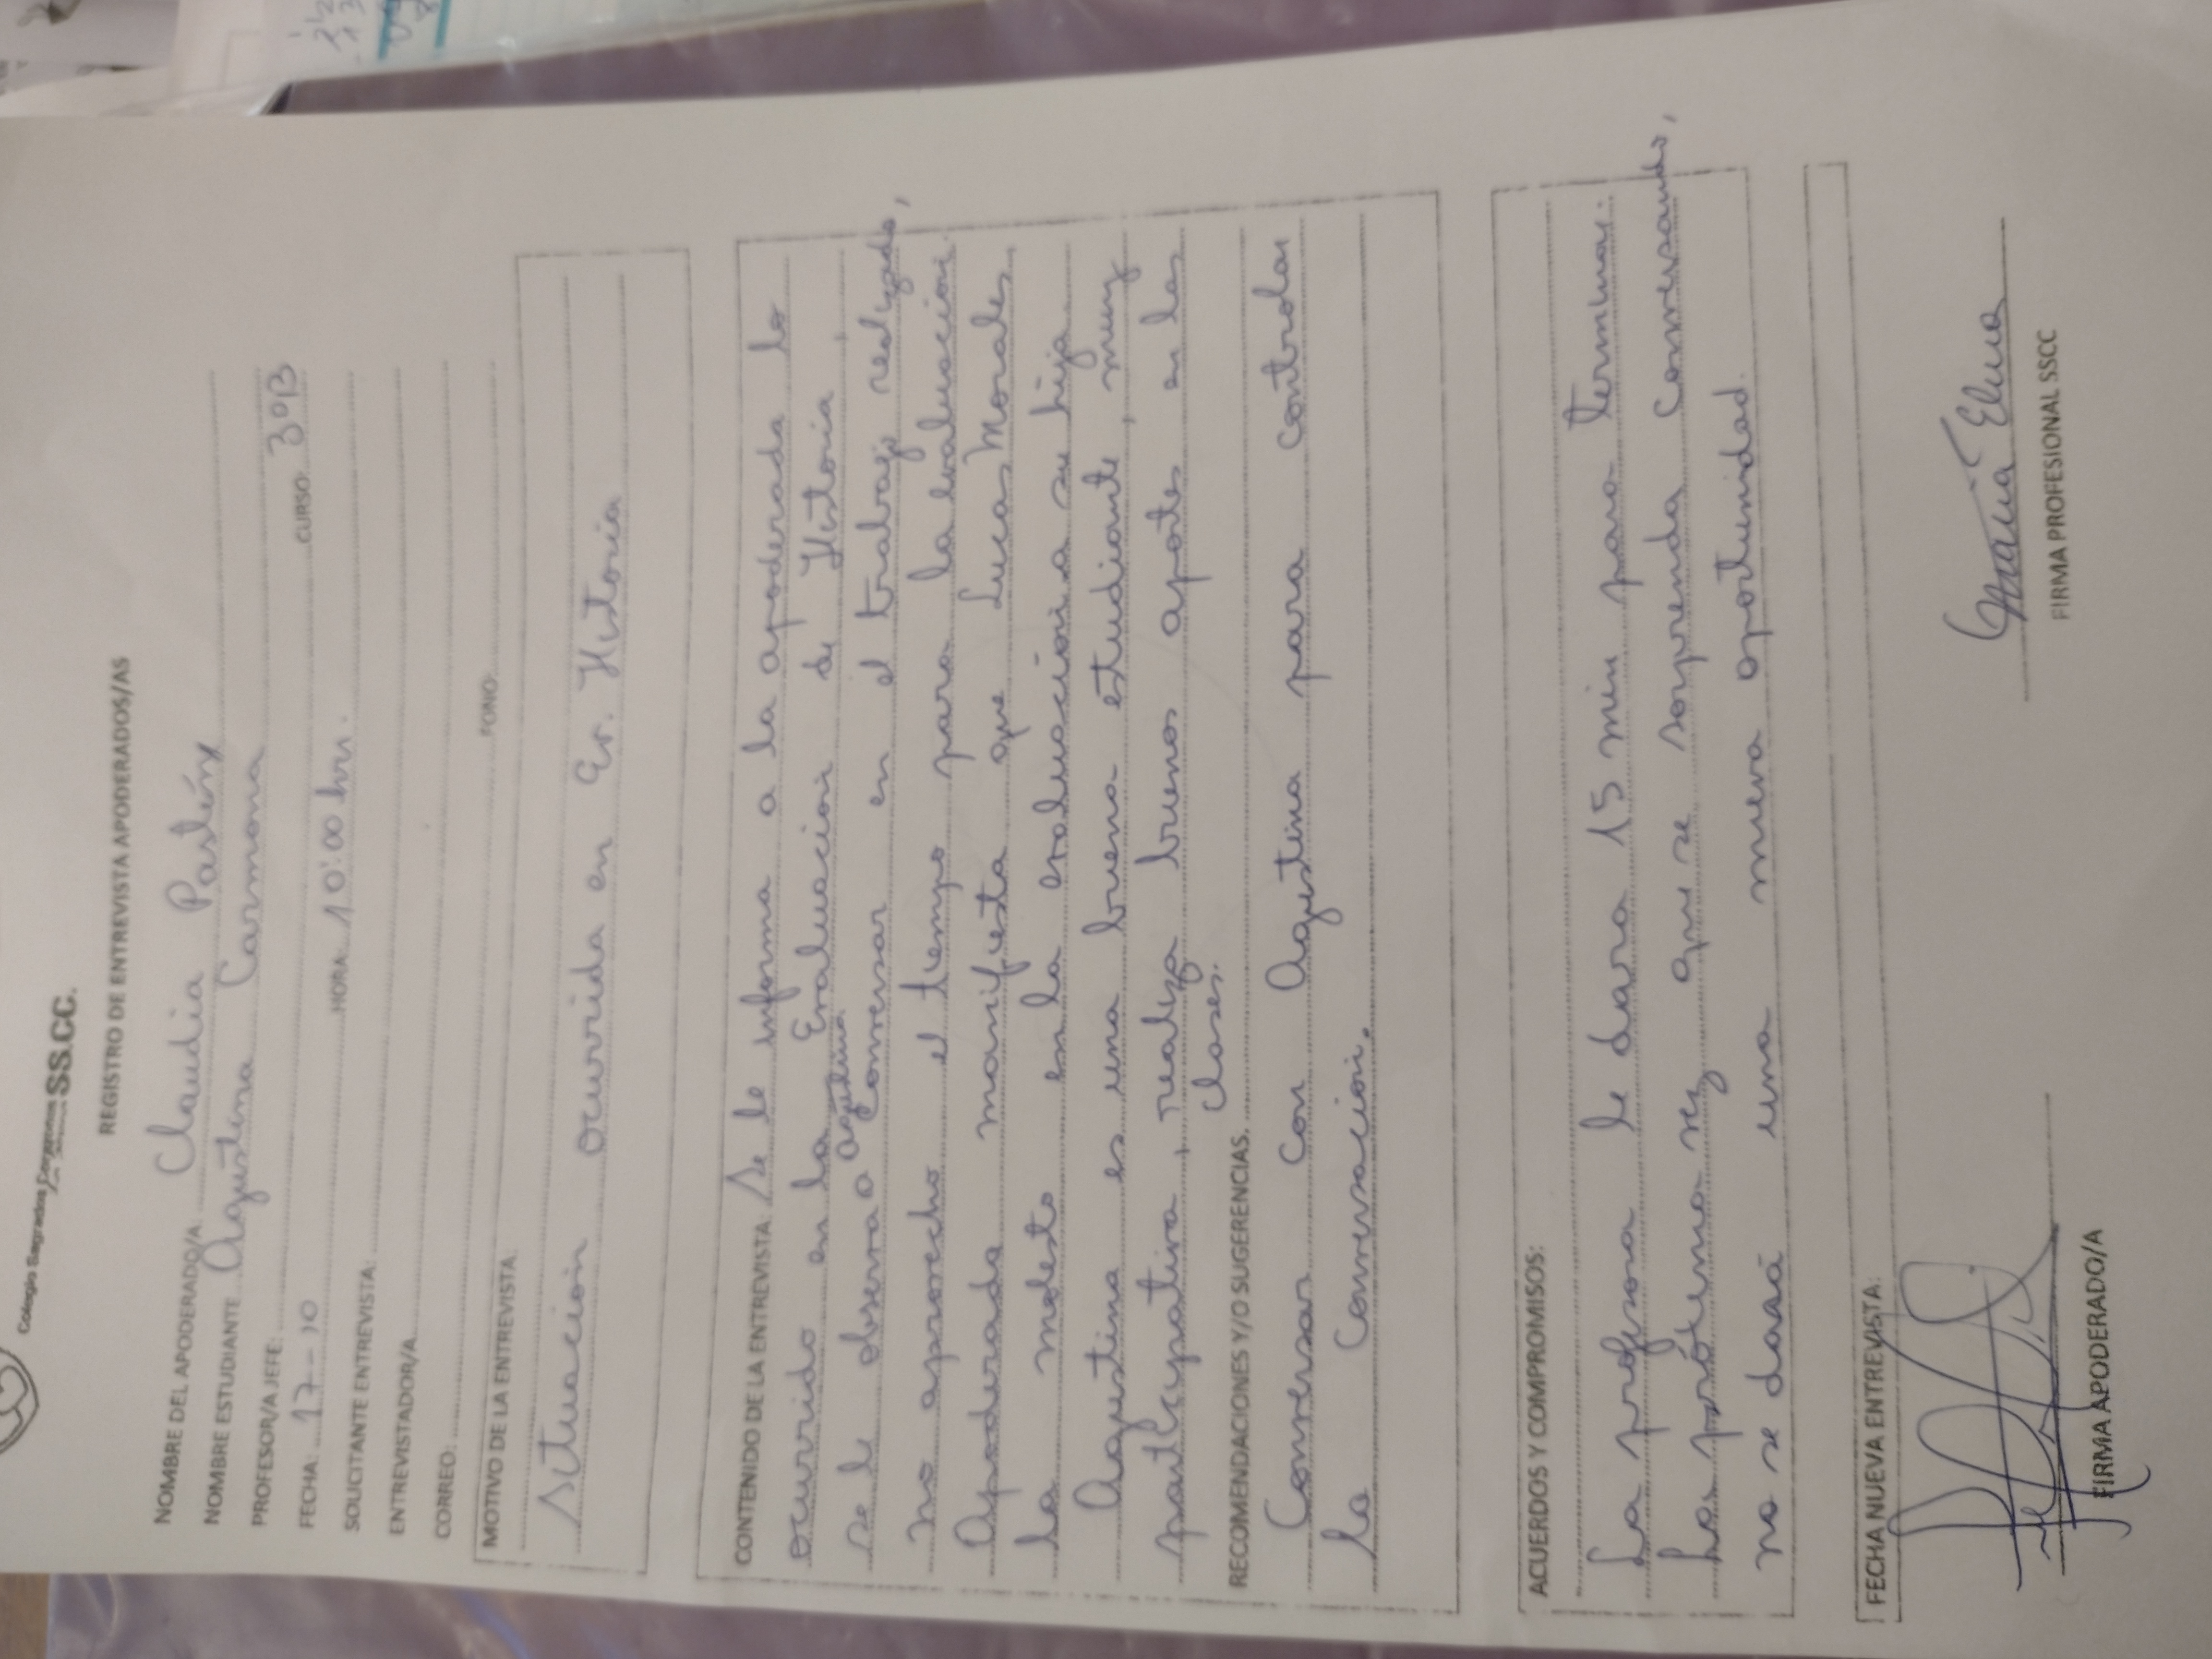 Colegio Sagrados Corazones SS.CC.
REGISTRO DE ENTREVISTA APODERADOS/AS
NOMBRE DEL APODERADO/A Claudia Pastén
NOMBRE ESTUDIANTE Agustina Carmona
PROFESOR/A JEFE: CURSO 3°B
FECHA 17-10 HORA 10:00 hrs.
SOLICITANTE ENTREVISTA:
ENTREVISTADOR/A
CORREO: FONO:
MOTIVO DE LA ENTREVISTA
Situación ocurrida en Ev. Historia
CONTENIDO DE LA ENTREVISTA: Se le informa a la apoderada lo
ocurrido en la Evaluación de Historia,
se le observa a Agustina conversar en el trabajo realizado,
no aprovecho el tiempo para la evaluación.
Apoderada manifiesta que Lucas Morales,
la molesto en la evaluación a su hija.
Agustina es una buena estudiante, muy
participativa, realiza buenos aportes en las
clases.
RECOMENDACIONES Y/O SUGERENCIAS.
Conversar con Agustina para controlar
la conversación.
ACUERDOS Y COMPROMISOS:
La profesora le dara 15 min para terminar.
La próxima vez que se sorprenda conversando,
no se dará una nueva oportunidad.
FECHA NUEVA ENTREVISTA:
FIRMA APODERADO/A
María Elena
FIRMA PROFESIONAL SSCC